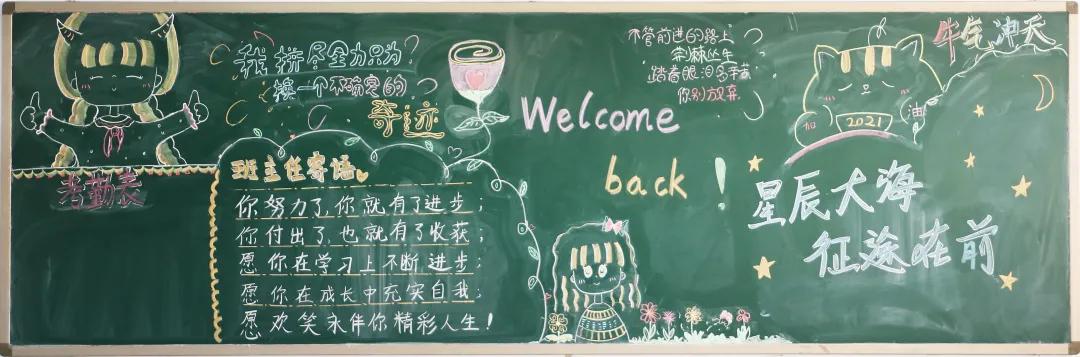 考勤表
我拼尽全力只为
换一个不确定的
奇迹
班主任寄语
你努力了,你就有了进步;
你付出了,也就有了收获;
愿你在学习上不断进步;
愿你在成长中充实自我;
愿欢笑永伴你精彩人生!
Welcome
back!
不管前进的路上
荆棘丛生
踏着眼泪多手黄
你别放弃
加
2021
油
牛气冲天
星辰大海
征途在前